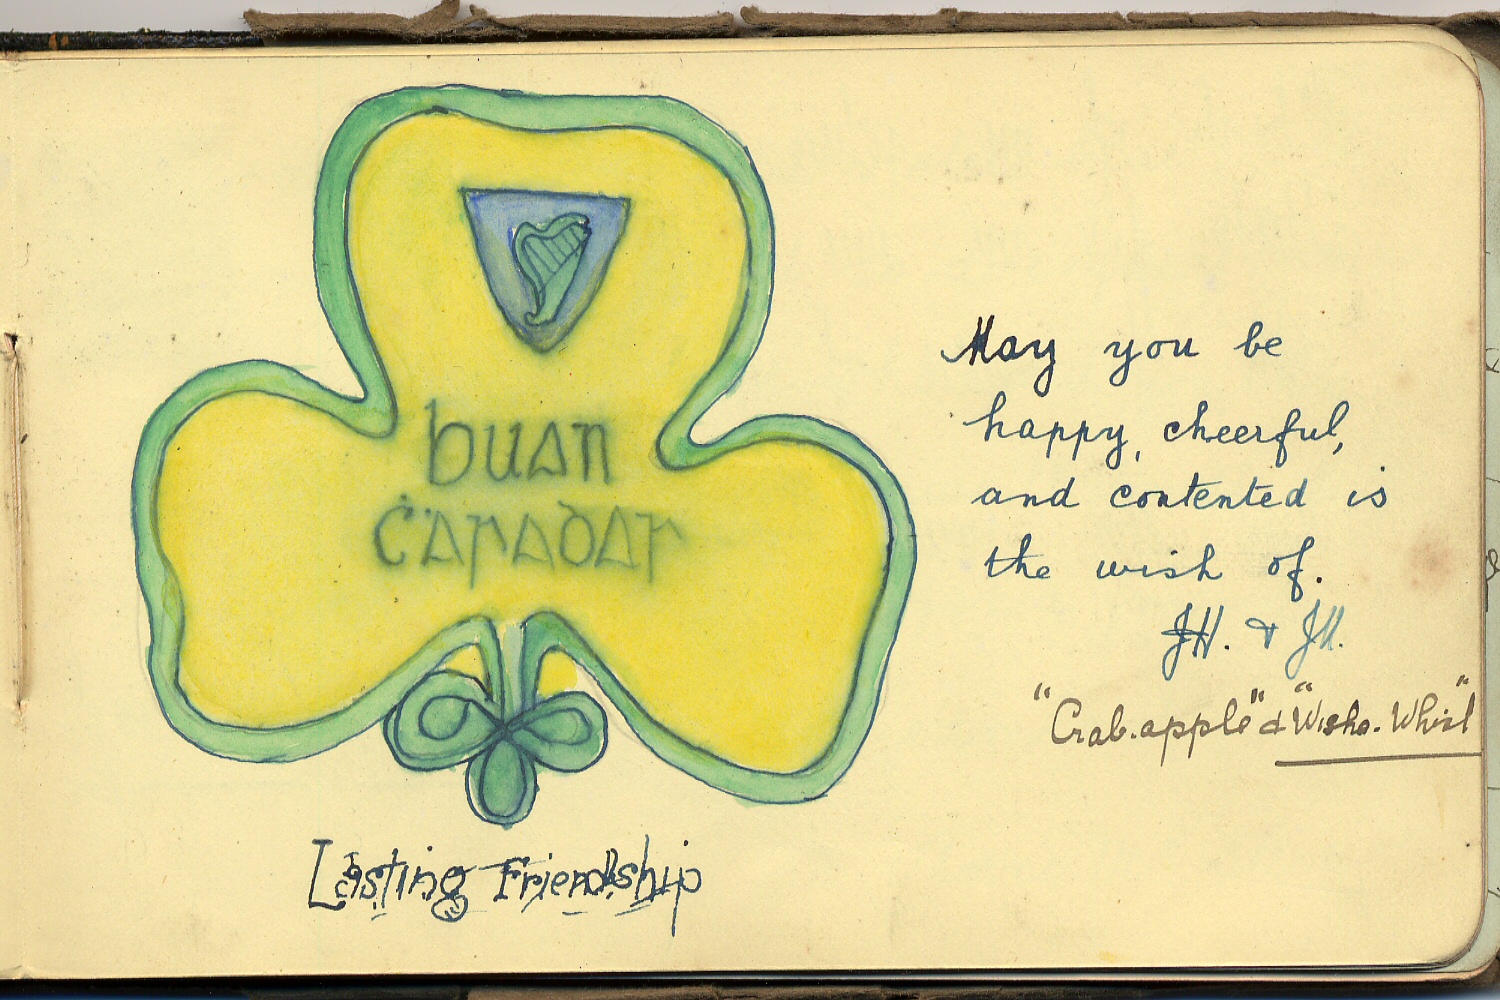 buan
ċaradar
Lasting Friendship
May you be
happy, cheerful,
and contented is
the wish of.
JH. & JH.
"Crab.apple" & "Wisha. Whist"